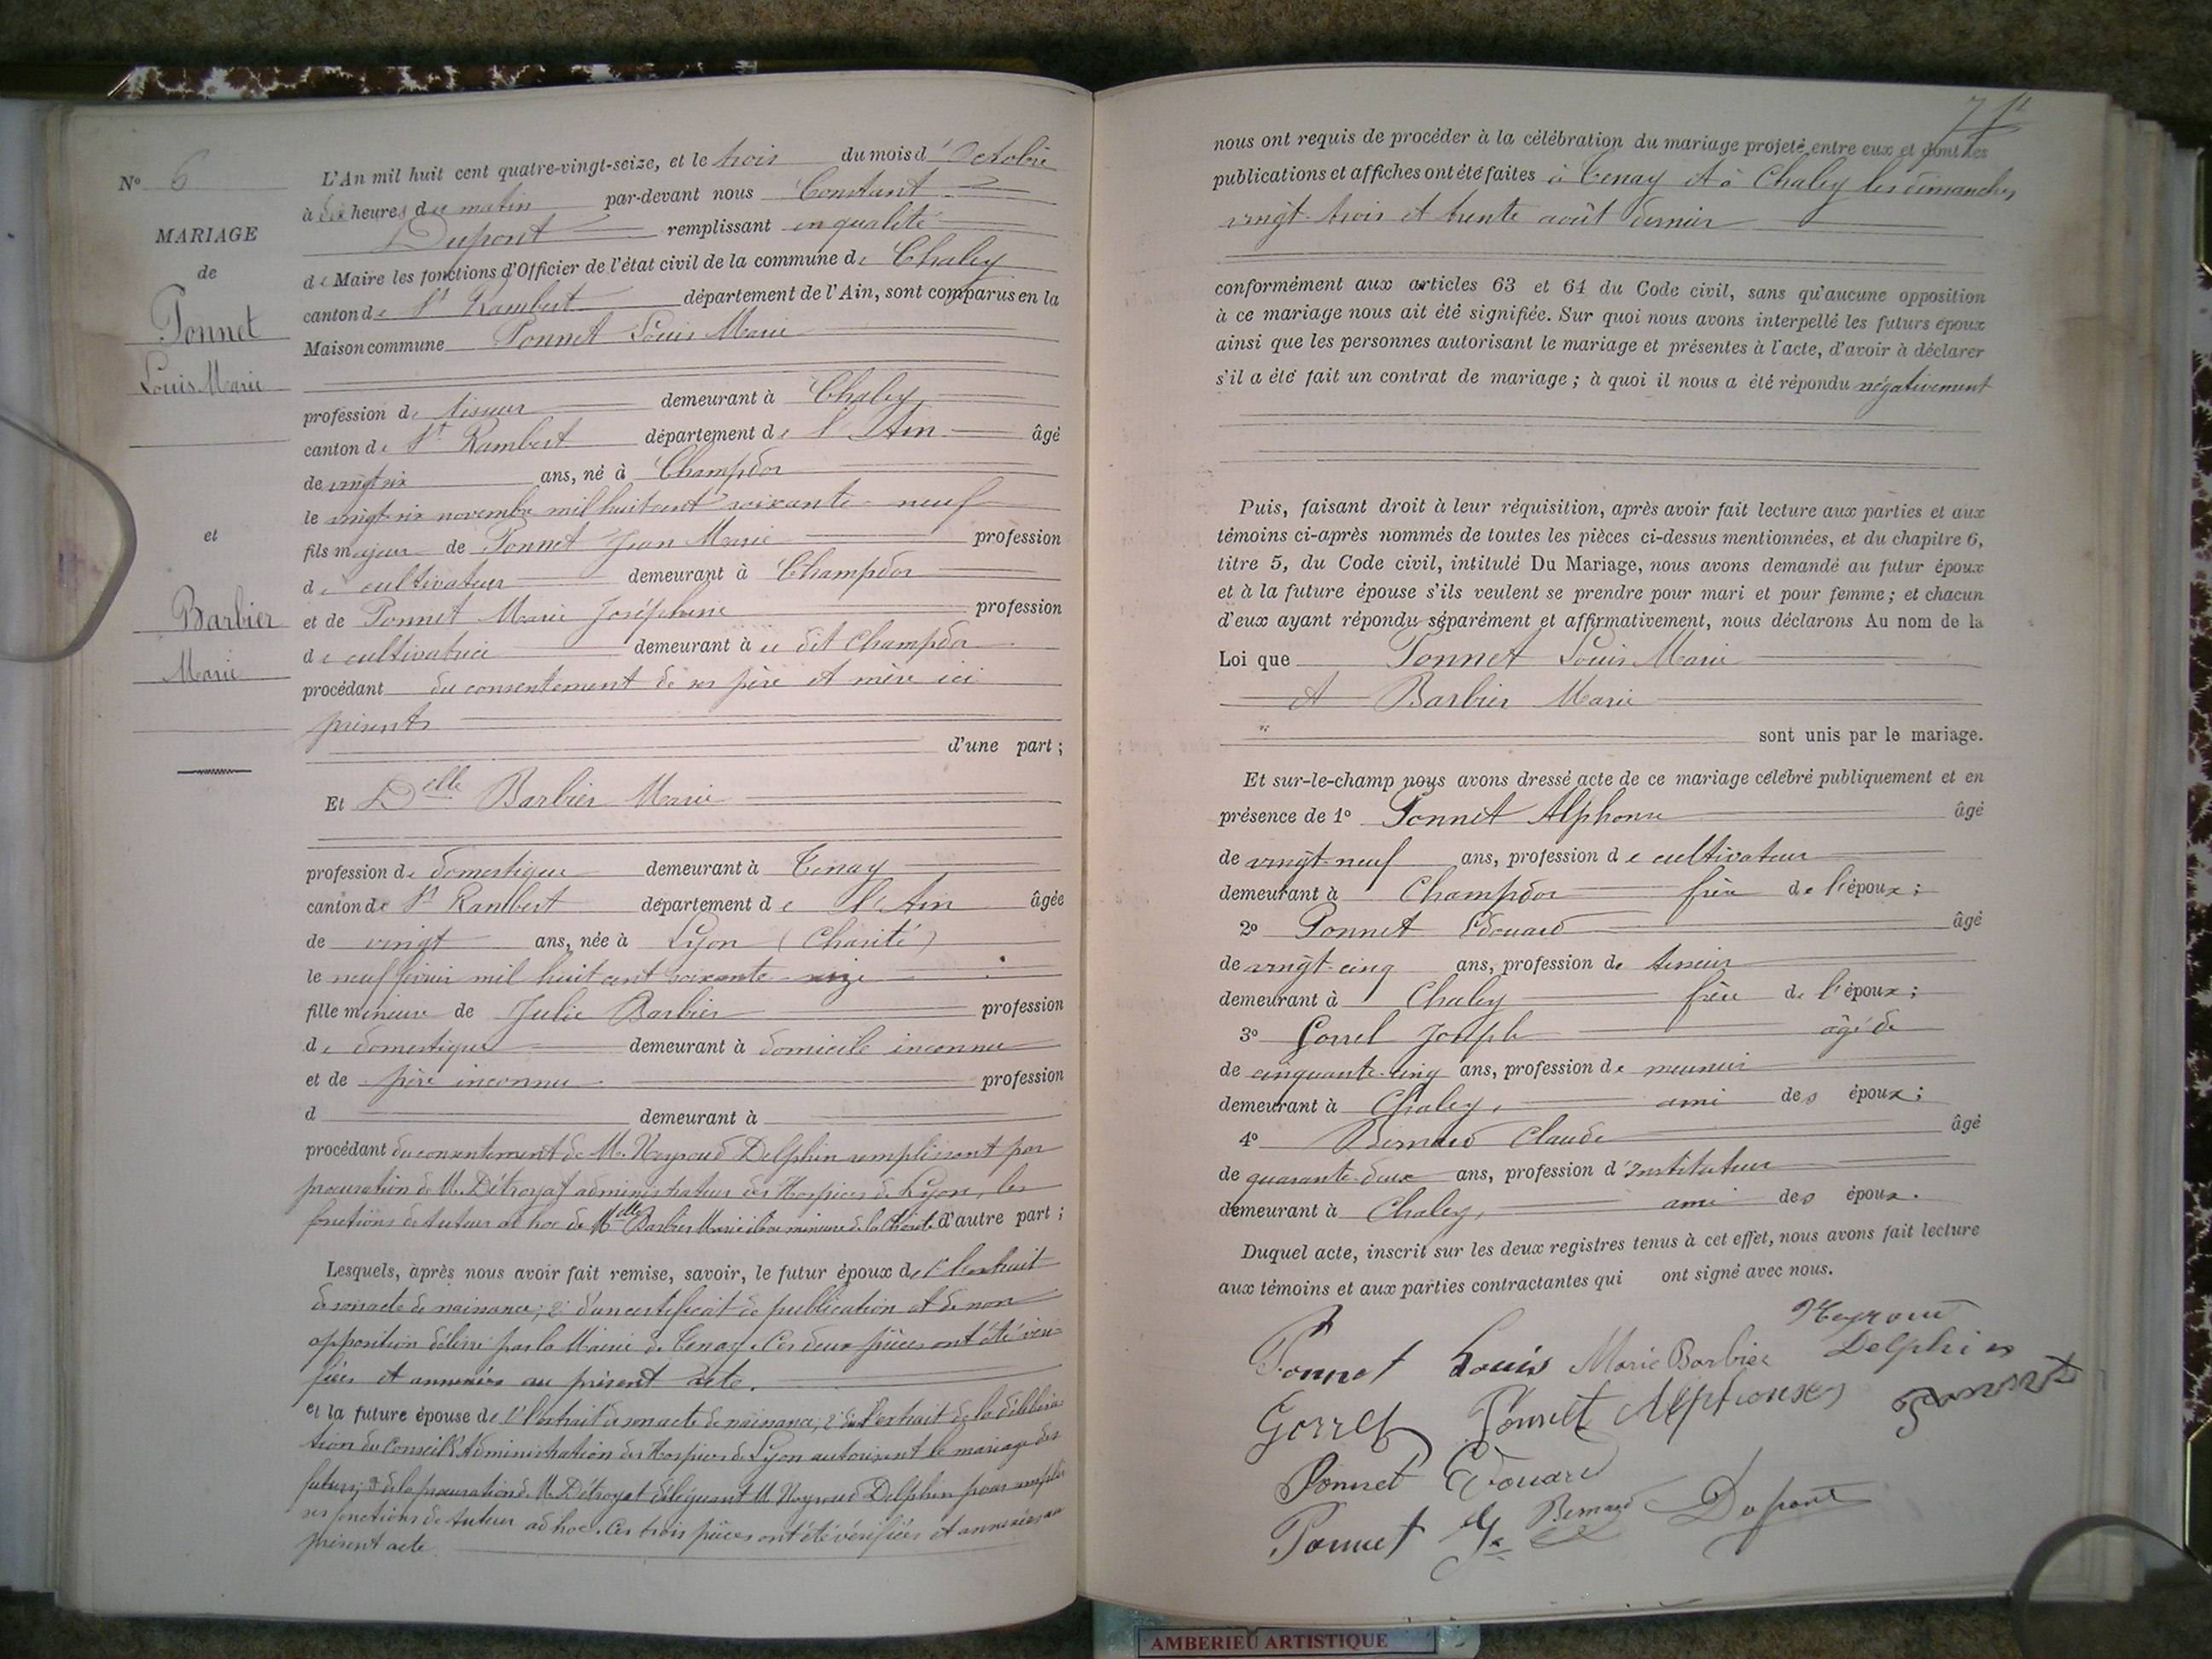 N° 6
MARIAGE
de
Ponnet
Louis Marie
et
Barbier
Marie
L'An mil huit cent quatre-vingt-seize, et le trois du mois d'Octobre
à dix heures du matin par-devant nous Constant
Dupont remplissant en qualité
de Maire les fonctions d'Officier de l'état civil de la commune de Chaley
canton de St Rambert département de l'Ain, sont comparus en la
Maison commune Ponnet Louis Marie
profession de tisseur demeurant à Chaley
canton de St Rambert département de l'Ain âgé
de vingt six ans, né à Champdor
le vingt-six novembre mil huit cent soixante-neuf
fils majeur de Ponnet Jean Marie profession
de cultivateur demeurant à Champdor
et de Ponnet Marie Joséphine profession
de cultivatrice demeurant à ce dit Champdor
procédant du consentement de ses père et mère ici
présents
d'une part ;
Et Delle Barbier Marie
profession de domestique demeurant à Tenay
canton de St Rambert département de l'Ain âgée
de vingt ans, née à Lyon (Charité)
le neuf février mil huit cent soixante-seize
fille mineure de Julie Barbier profession
de domestique demeurant à domicile inconnu
et de père inconnu profession
d demeurant à
procédant du consentement de M. Neyroud Delphin remplissant par
procuration de M. Détroyat administrateur des Hospices de Lyon, les
fonctions de tuteur ad hoc de Mlle Barbier Marie élève mineure de la Charité d'autre part ;
Lesquels, après nous avoir fait remise, savoir, le futur époux de 1° l'extrait
de son acte de naissance ; 2° d'un certificat de publication et de non
opposition délivré par la Mairie de Tenay. Ces deux pièces ont été véri-
fiées et annexées au présent acte.
et la future épouse de 1° l'extrait de son acte de naissance ; 2° de l'extrait de la délibéra-
tion du Conseil d'Administration des Hospices de Lyon autorisant le mariage des
futurs ; 3° de la procuration de M. Détroyat déléguant M. Neyroud Delphin pour remplir
ses fonctions de tuteur ad hoc. Ces trois pièces ont été vérifiées et annexées au
présent acte.
nous ont requis de procéder à la célébration du mariage projeté entre eux et dont les
publications et affiches ont été faites à Tenay et à Chaley les dimanches
vingt-trois et trente août dernier
conformément aux articles 63 et 64 du Code civil, sans qu'aucune opposition
à ce mariage nous ait été signifiée. Sur quoi nous avons interpellé les futurs époux
ainsi que les personnes autorisant le mariage et présentes à l'acte, d'avoir à déclarer
s'il a été fait un contrat de mariage ; à quoi il nous a été répondu négativement
Puis, faisant droit à leur réquisition, après avoir fait lecture aux parties et aux
témoins ci-après nommés de toutes les pièces ci-dessus mentionnées, et du chapitre 6,
titre 5, du Code civil, intitulé Du Mariage, nous avons demandé au futur époux
et à la future épouse s'ils veulent se prendre pour mari et pour femme ; et chacun
d'eux ayant répondu séparément et affirmativement, nous déclarons Au nom de la
Loi que Ponnet Louis Marie
et Barbier Marie
sont unis par le mariage.
Et sur-le-champ nous avons dressé acte de ce mariage célébré publiquement et en
présence de 1° Ponnet Alphonse âgé
de vingt-neuf ans, profession de cultivateur
demeurant à Champdor frère de l'époux ;
2° Ponnet Edouard âgé
de vingt-cinq ans, profession de tisseur
demeurant à Chaley frère de l'époux ;
3° Gorrel Joseph âgé de
de cinquante-cinq ans, profession de meunier
demeurant à Chaley, ami des époux ;
4° Bernard Claude âgé
de quarante-deux ans, profession d'instituteur
demeurant à Chaley, ami des époux.
Duquel acte, inscrit sur les deux registres tenus à cet effet, nous avons fait lecture
aux témoins et aux parties contractantes qui ont signé avec nous.
Neyroud
Delphin
Ponnet Louis Marie Barbier
Gorrel Ponnet Alphonse Ponnet
Ponnet Edouard
Ponnet Bernard Dupont
AMBERIEU ARTISTIQUE